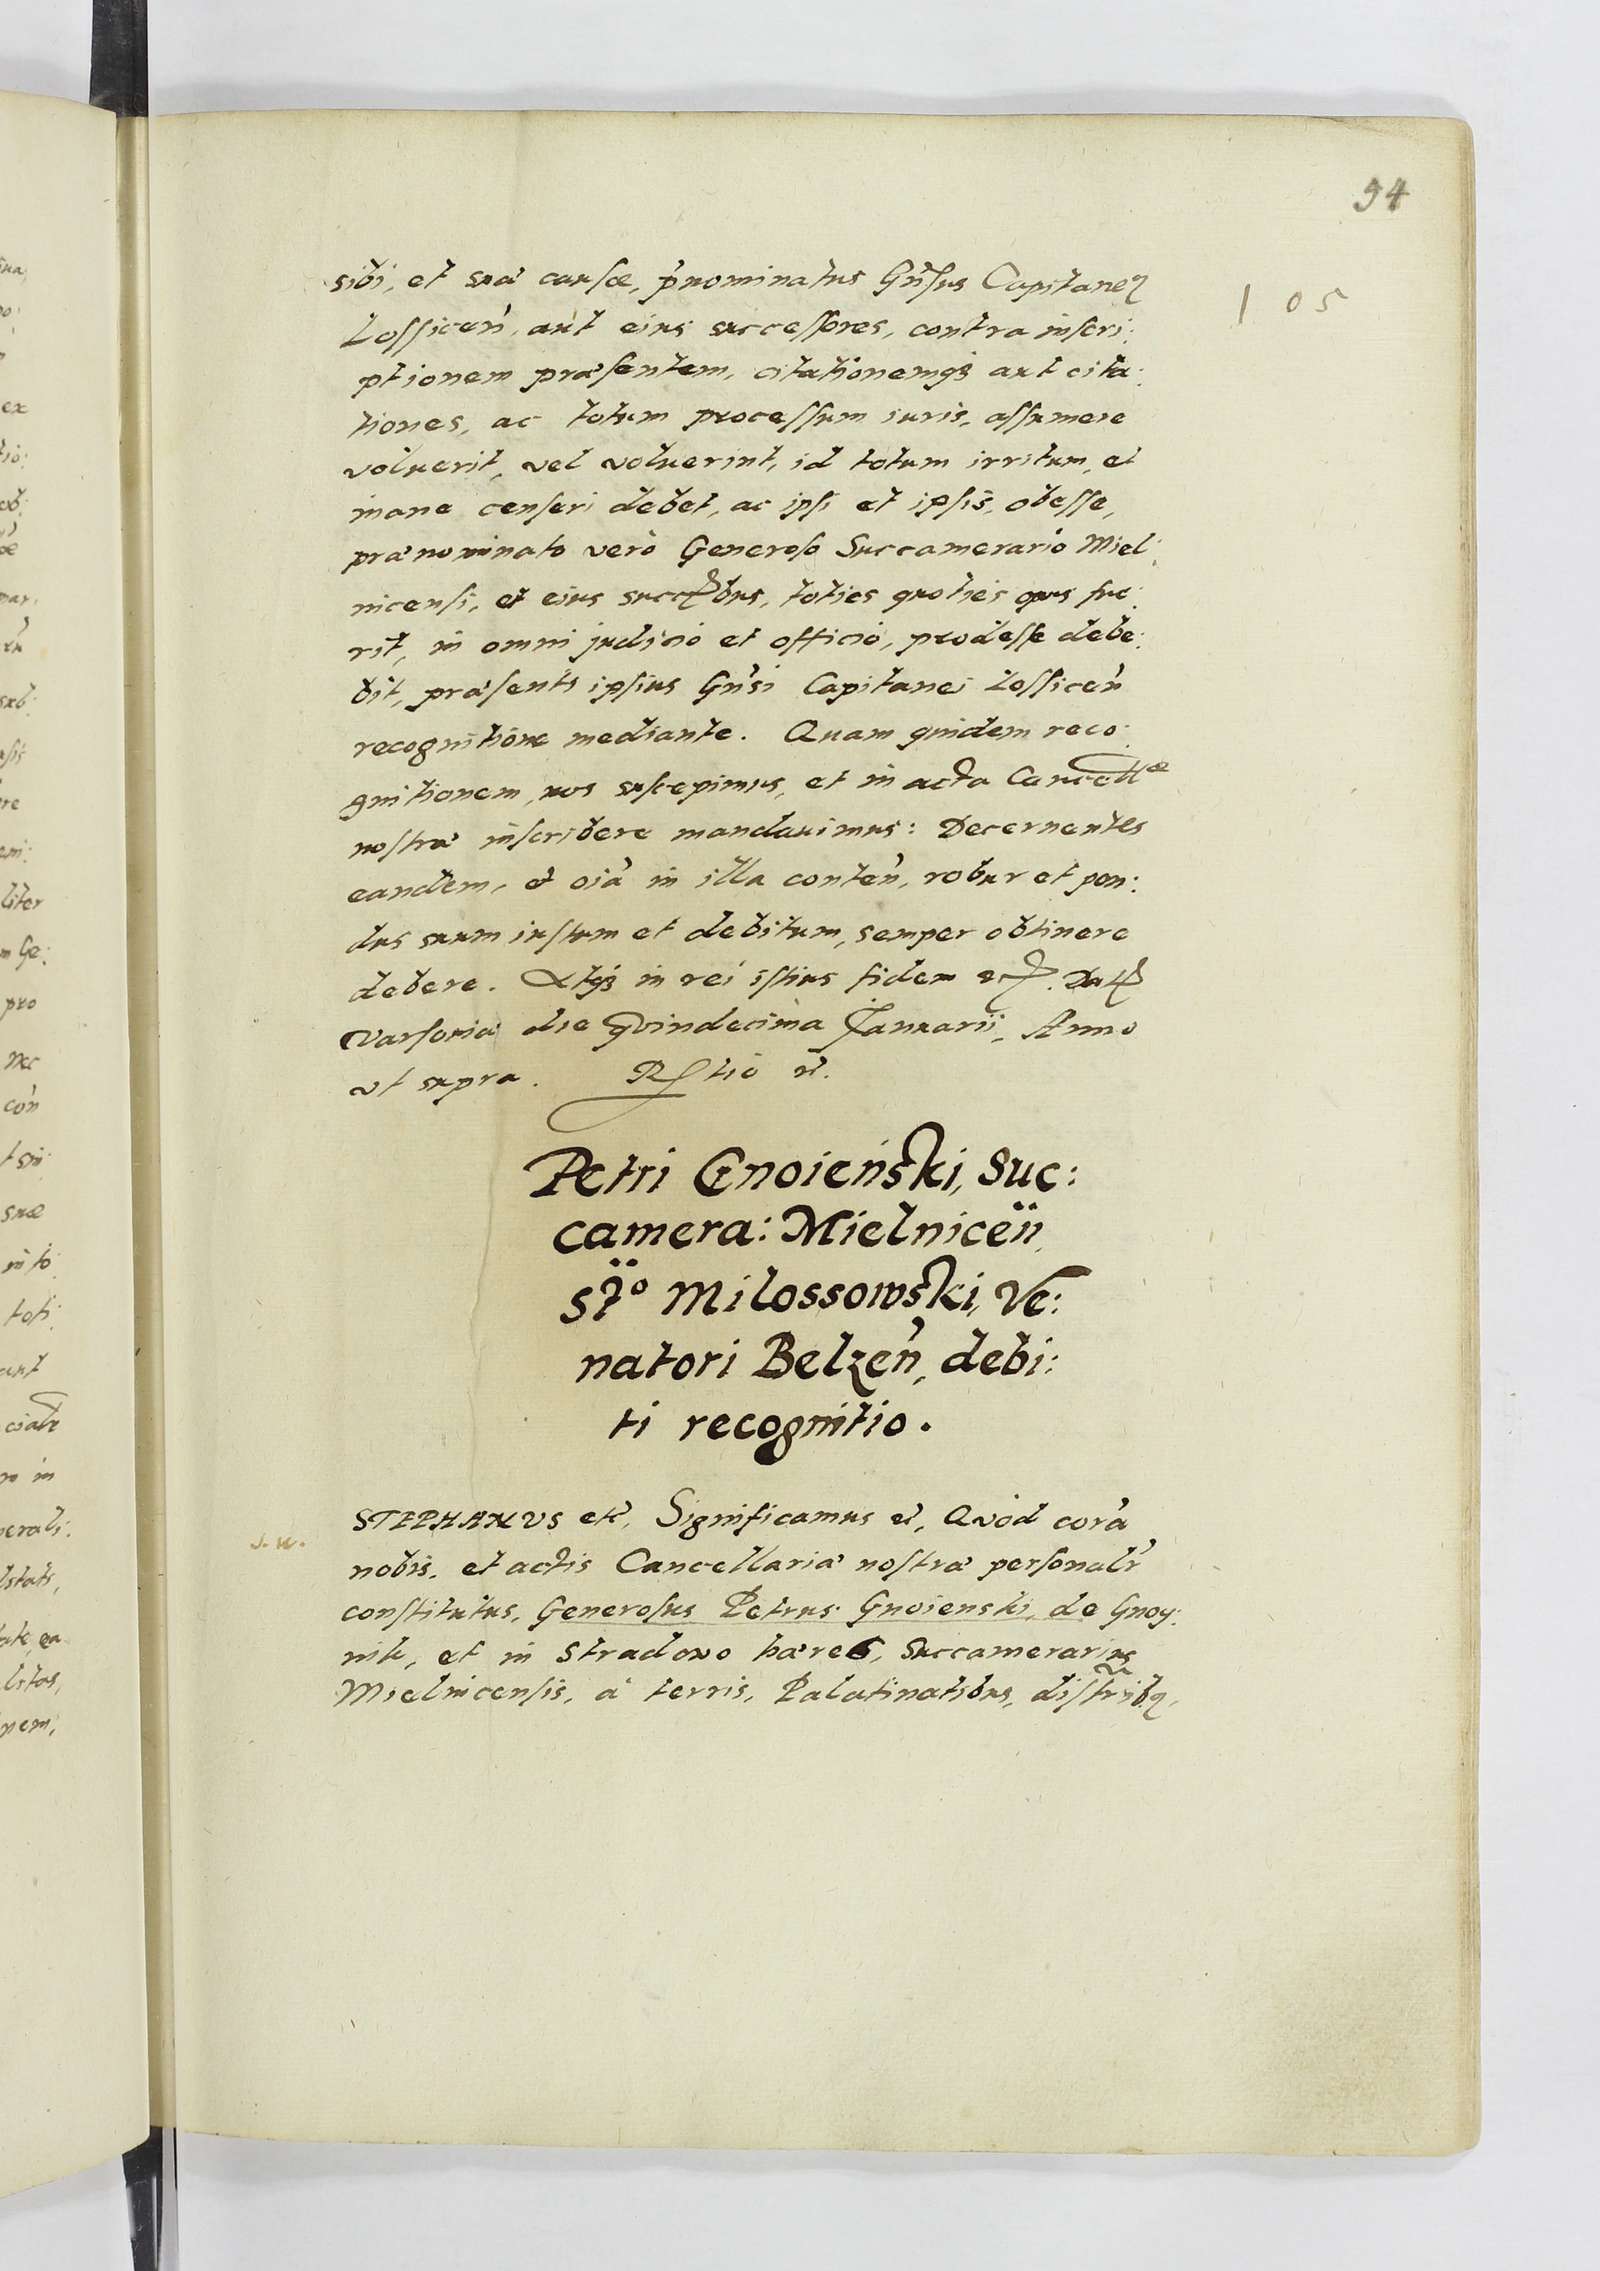 94
105
sibi, et suæ causæ, p̃nominatus Gñsus Capitaneꝰ
Lossiceñ, aut eius successores, contra inscri:
ptionem præsentem, citationemqꝫ aut cita:
tiones, ac totum processum iuris, assumere
voluerit, vel voluerint, id totum irritum, et
inane censeri debet, ac ipsi et ipsis, obesse,
prænominato verò Generoso Succamerario Miel:
nicensi, et eius succꝭbus, toties quoties opus fue:
rit, in omni judicio et officio, prodesse debe:
bit, præsenti ipsius Gñsi Capitanei Lossiceñ
recognitione mediante. Quam quidem reco:
gnitionem, nos suscepimus, et in acta Cancellæ
nostræ inscribere mandauimus: Decernentes
eandem, et oĩa in illa conteñ, robur et pon:
dus suum iustum et debitum, semper obtinere
debere. Utqꝫ in rei istius fidem etꝭ. Datꝭ
Varsouiæ die Qvindecima Januarii, Anno
vt supra. Rꝭtio ec̃.
Petri Gnoieński, Suc:
camera: Mielniceñ
Stõ Milossowski, Ve:
natori Belzeñ, debi:
ti recognitio.
J. W.
STEPHANVS etc̃, Significamus ec̃, Qvòd corã
nobis, et actis Cancellariæ nostræ personalr̃
constitutus, Generosus Petrus Gnoienski, de Gnoy:
nik, et in Stradowo hæres, Succamerarius
Mielnicensis, à terris, Palatinatibus, distr̃ibꝰ,